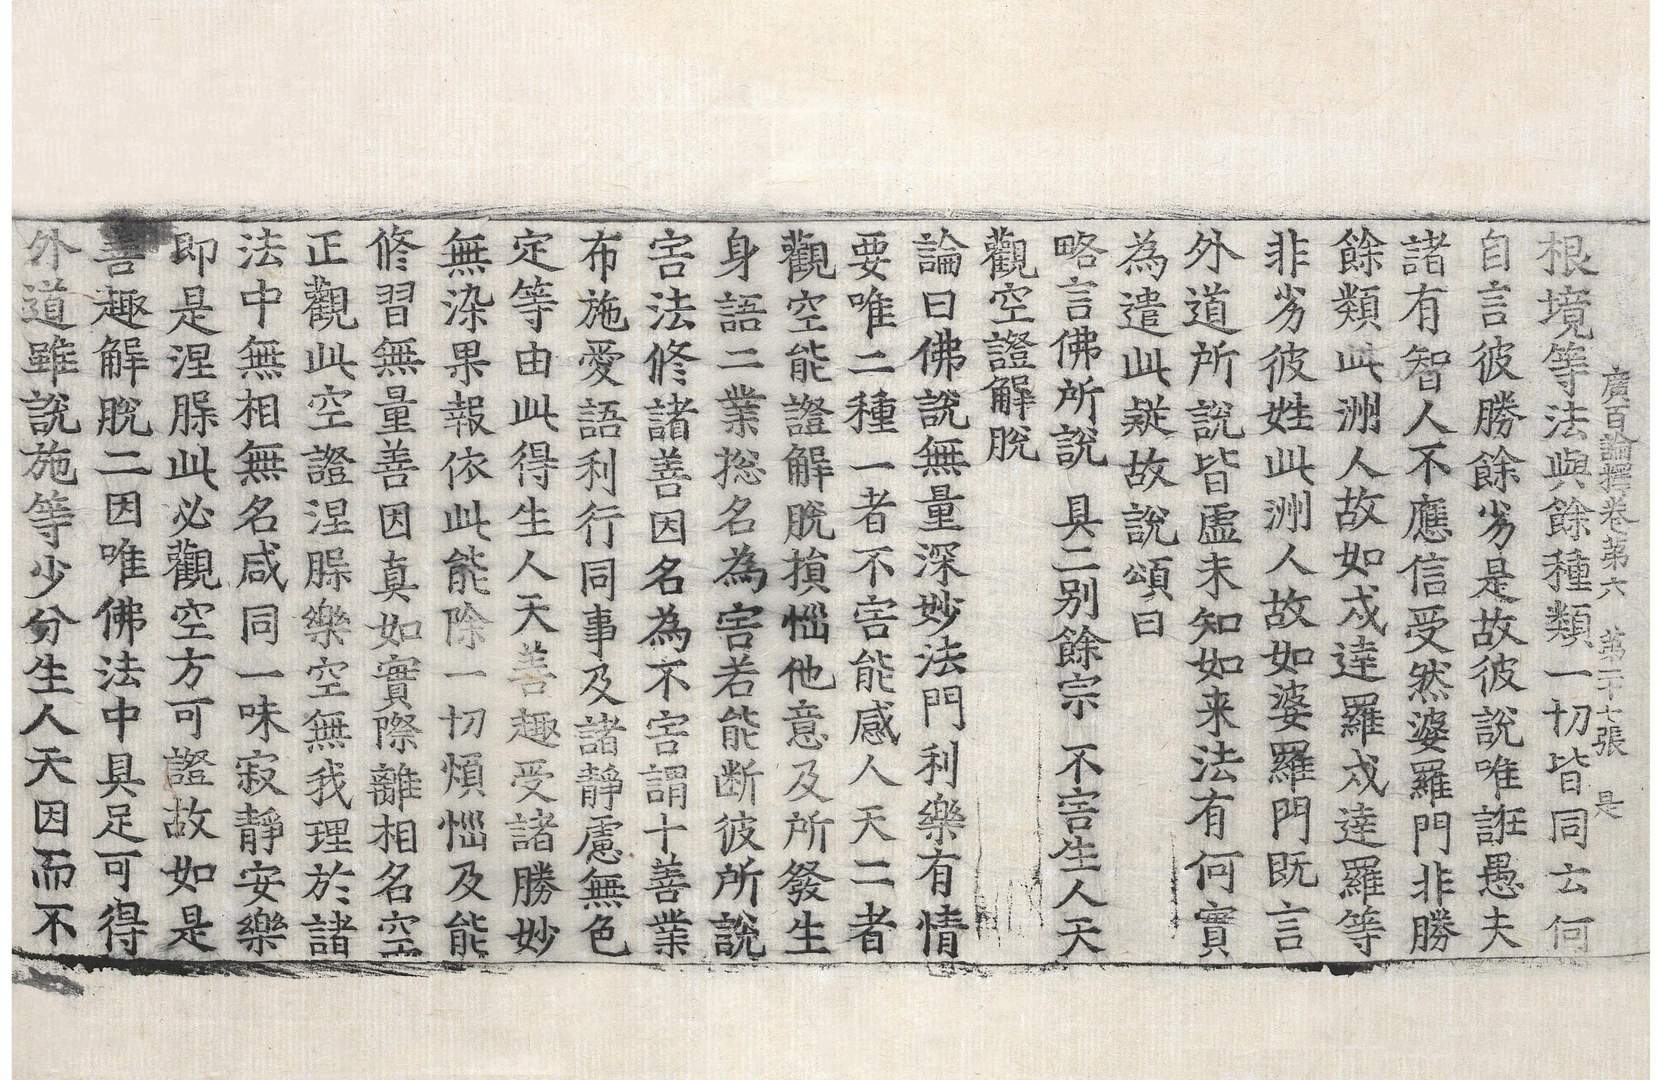 廣百論釋卷第六　第二十七張　是
根境等法與餘種類一切皆同云何
自言彼勝餘劣是故彼說唯誑愚夫
諸有智人不應信受然婆羅門非勝
餘類此洲人故如戍達羅戍達羅等
非劣彼姓此洲人故如婆羅門既言
外道所說皆虛未知如来法有何實
為遣此疑故說頌曰
略言佛所說　具二别餘宗　不害生人天
觀空證解脫
論曰佛說無量深妙法門利樂有情
要唯二種一者不害能感人天二者
觀空能證解脫損惱他意及所發生
身語二業捴名為害若能断彼所說
害法修諸善因名為不害謂十善業
布施愛語利行同事及諸靜慮無色
定等由此得生人天善趣受諸勝妙
無染果報依此能除一切煩惱及能
修習無量善因真如實際離相名空
正觀此空證涅槃樂空無我理於諸
法中無相無名咸同一味寂靜安樂
即是涅槃此必觀空方可證故如是
善趣解脫二因唯佛法中具足可得
外道雖說施等少分生人天因而不